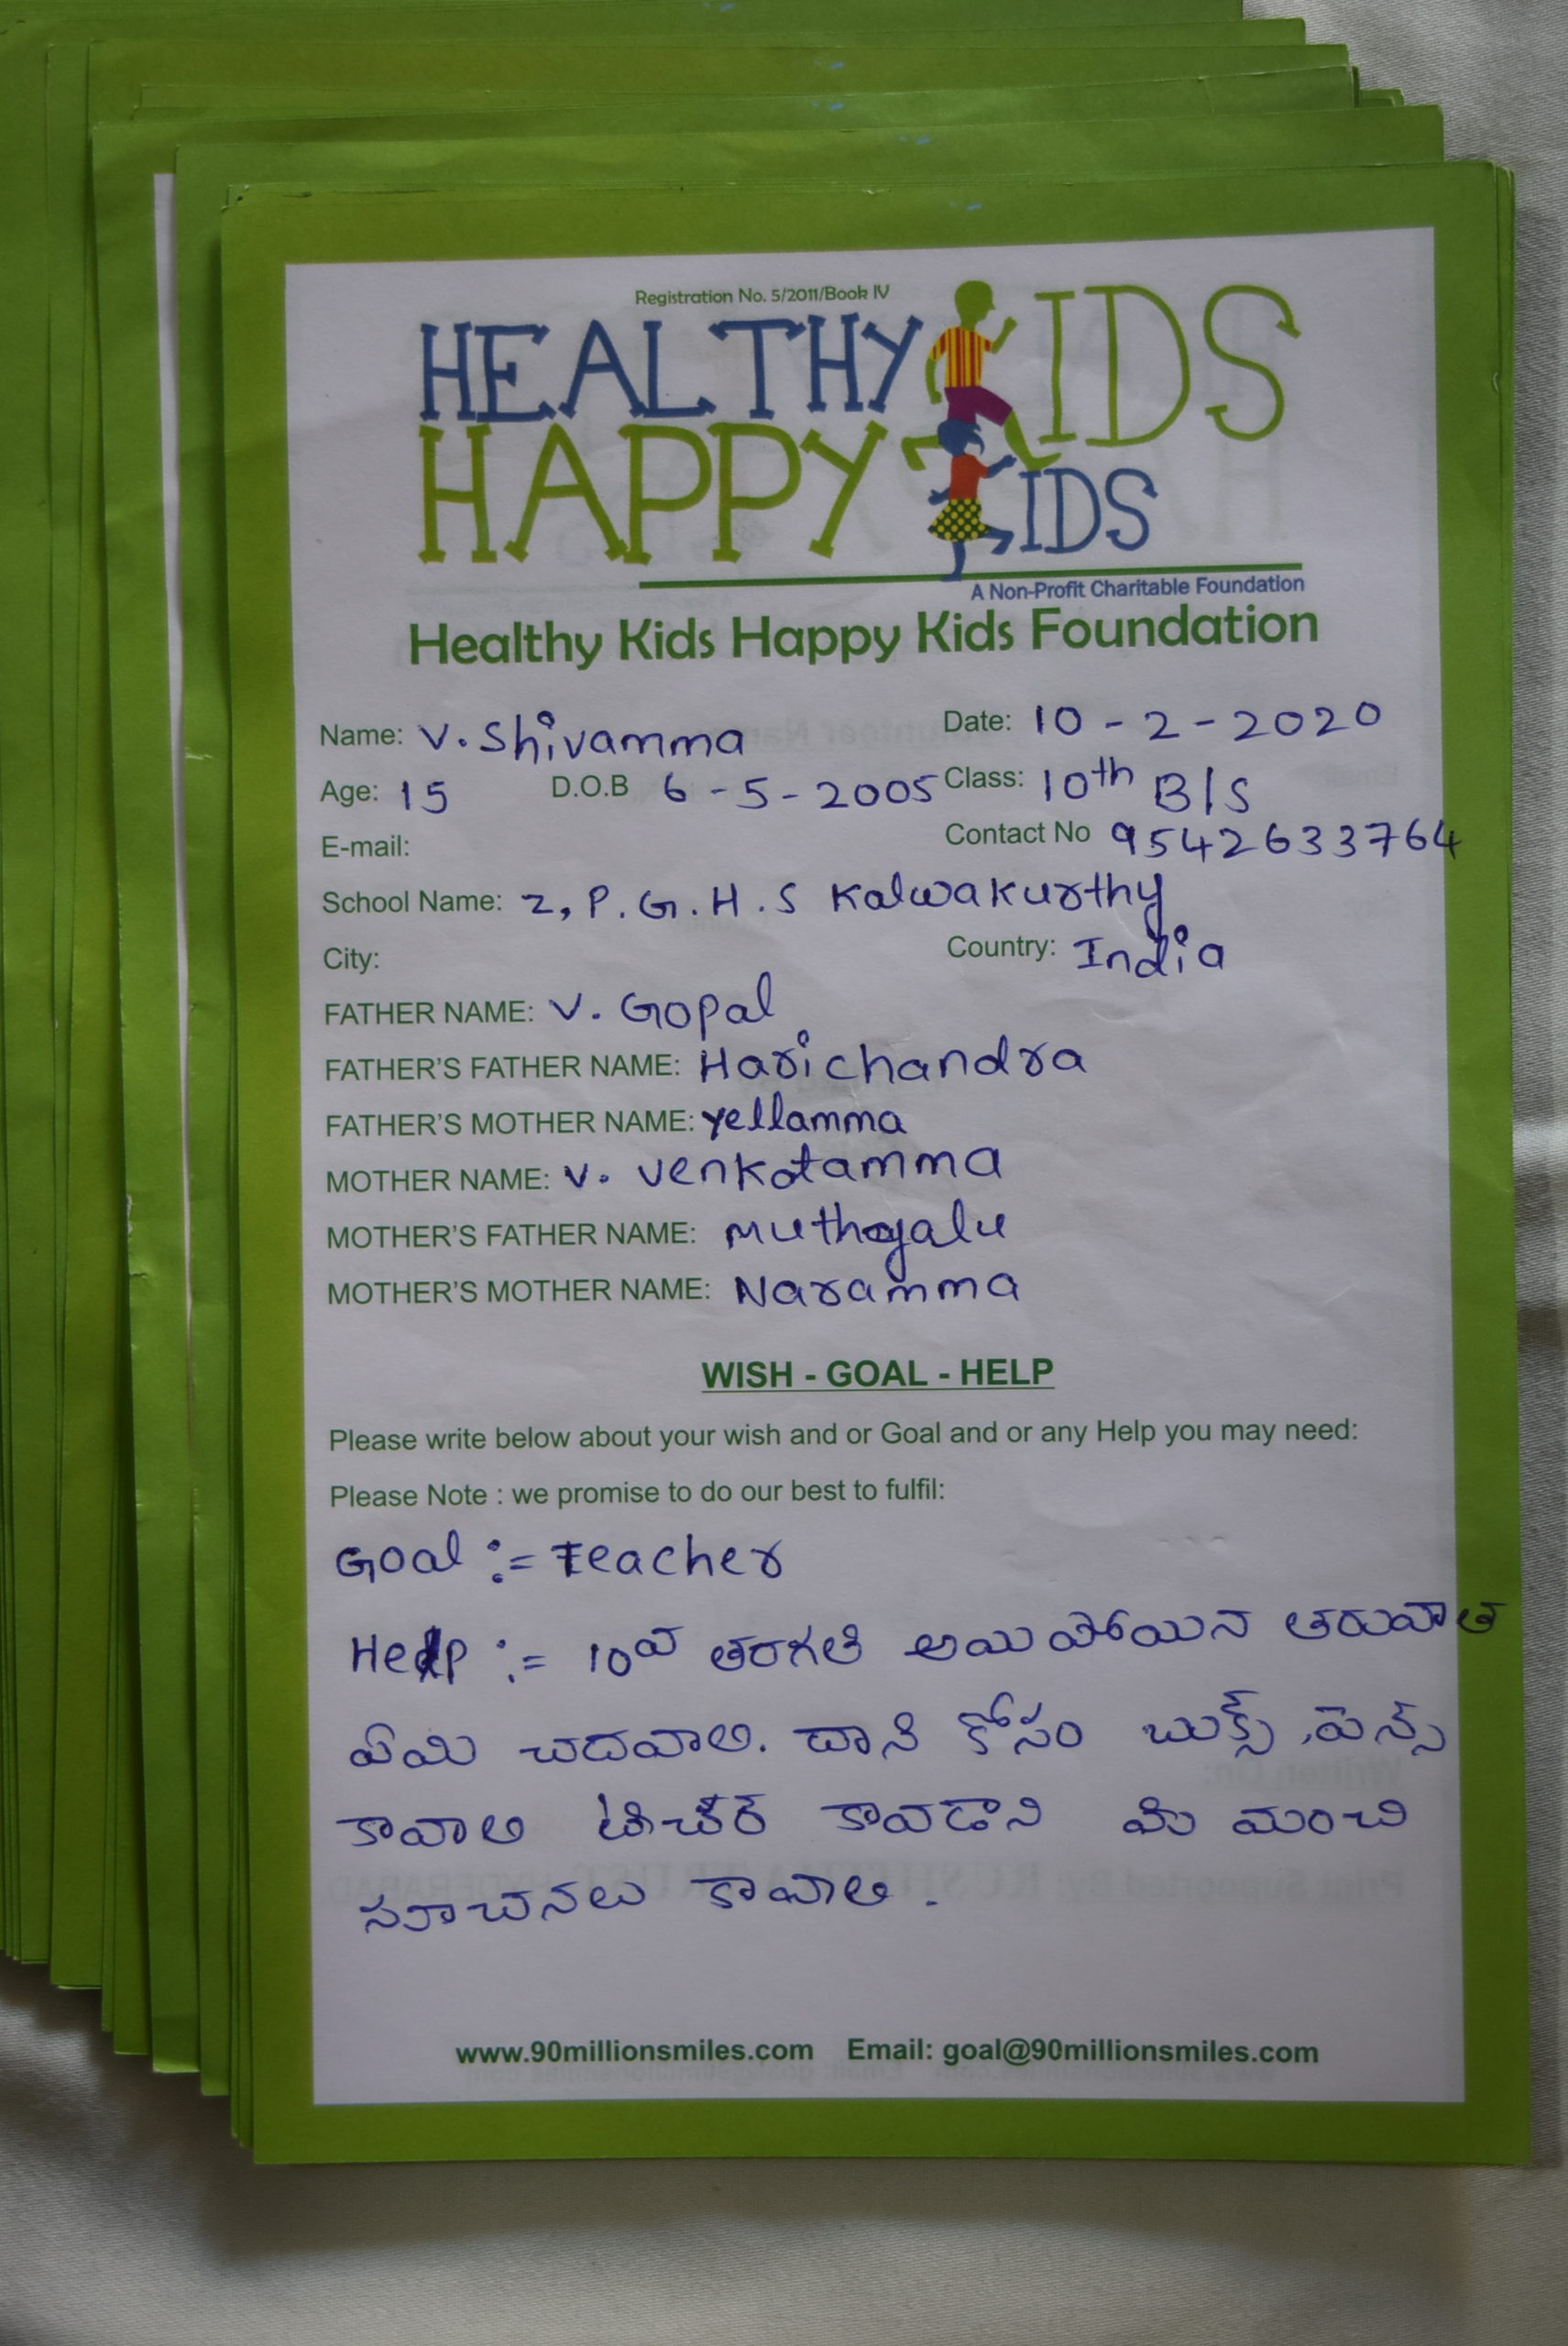 Registration No. 5/2011/Book IV
HEALTHY KIDS
HAPPY KIDS
A Non-Profit Charitable Foundation
Healthy Kids Happy Kids Foundation
Name: V. Shivamma Date: 10 - 2 - 2020
Age: 15 D.O.B 6 - 5 - 2005 Class: 10th B/S
E-mail: Contact No 9542633764
School Name: Z, P. G. H. S Kalwakurthy
City: Country: India
FATHER NAME: V. Gopal
FATHER'S FATHER NAME: Harichandra
FATHER'S MOTHER NAME: Yellamma
MOTHER NAME: V. Venkatamma
MOTHER'S FATHER NAME: Muthayalu
MOTHER'S MOTHER NAME: Naramma
WISH - GOAL - HELP
Please write below about your wish and or Goal and or any Help you may need:
Please Note : we promise to do our best to fulfil:
Goal := Teacher
Help := 10వ తరగతి అయిపోయిన తరువాత
ఏమి చదవాలి. దాని కోసం బుక్స్, పెన్స్
కావాలి టీచర్ కావడాని మీ మంచి
సూచనలు కావాలి.
www.90millionsmiles.com Email: goal@90millionsmiles.com